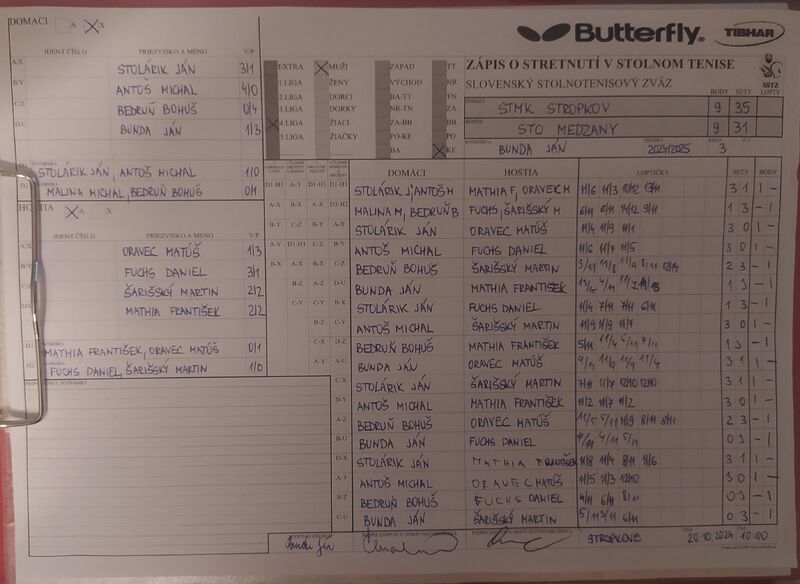 DOMÁCI A X
Butterfly TIBHAR
IDENT.ČÍSLO PRIEZVISKO A MENO V/P
A/X STOLÁRIK JÁN 3/1
B/Y ANTOŠ MICHAL 4/0
C/Z BEDRUŇ BOHUŠ 0/4
D/U BUNDA JÁN 1/3
D1 ŠTVORHRA STOLÁRIK JÁN, ANTOŠ MICHAL 1/0
D2 MALINA MICHAL, BEDRUŇ BOHUŠ 0/1
EXTRA MUŽI ZÁPAD TT
1.LIGA ŽENY VÝCHOD NR
2.LIGA DORCI BA-TT TN
3.LIGA DORKY NR-TN ZA
4.LIGA ŽIACI ZA-BB BB
5.LIGA ŽIAČKY PO-KE PO
BA KE
ZÁPIS O STRETNUTÍ V STOLNOM TENISE
SLOVENSKÝ STOLNOTENISOVÝ ZVÄZ SSTZ
BODY SETY LOPTY
DOMÁCI STMK STROPKOV 9 35
HOSTIA STO MEDZANY 9 31
ROZHODCA BUNDA JÁN SEZÓNA 2024/2025 3
HOSTIA A X
IDENT.ČÍSLO PRIEZVISKO A MENO V/P
A/X ORAVEC MATÚŠ 1/3
B/Y FUCHS DANIEL 3/1
C/Z ŠARIŠSKÝ MARTIN 2/2
D/U MATHIA FRANTIŠEK 2/2
H1 MATHIA FRANTIŠEK, ORAVEC MATÚŠ 0/1
H2 FUCHS DANIEL, ŠARIŠSKÝ MARTIN 1/0
DOMÁCI HOSTIA LOPTIČKY SETY BODY
STOLÁRIK J, ANTOŠ M MATHIA F, ORAVEC M 11/6 11/3 10/12 13/11 3 1 1 -
MALINA M, BEDRUŇ B FUCHS, ŠARIŠSKÝ M 1 3 - 1
STOLÁRIK JÁN ORAVEC MATÚŠ 11/4 11/9 11/1 3 0 1 -
ANTOŠ MICHAL FUCHS DANIEL 11/6 11/7 11/5 3 0 1 -
BEDRUŇ BOHUŠ ŠARIŠSKÝ MARTIN 2 3 - 1
BUNDA JÁN MATHIA FRANTIŠEK 1 3 - 1
STOLÁRIK JÁN FUCHS DANIEL 11/4 7/11 7/11 6/11 1 3 - 1
ANTOŠ MICHAL ŠARIŠSKÝ MARTIN 11/9 11/9 11/7 3 0 1 -
BEDRUŇ BOHUŠ MATHIA FRANTIŠEK 5/11 11/4 6/11 7/11 1 3 - 1
BUNDA JÁN ORAVEC MATÚŠ 9/11 11/9 11/9 11/4 3 1 1 -
STOLÁRIK JÁN ŠARIŠSKÝ MARTIN 7/11 11/7 12/10 12/10 3 1 1 -
ANTOŠ MICHAL MATHIA FRANTIŠEK 11/2 11/7 11/2 3 0 1 -
BEDRUŇ BOHUŠ ORAVEC MATÚŠ 11/5 11/9 8/11 2 3 - 1
BUNDA JÁN FUCHS DANIEL 4/11 5/11 0 3 - 1
STOLÁRIK JÁN MATHIA FRANTIŠEK 11/8 11/4 8/11 11/6 3 1 1 -
ANTOŠ MICHAL ORAVEC MATÚŠ 11/5 11/3 12/10 3 0 1 -
BEDRUŇ BOHUŠ FUCHS DANIEL 4/11 6/11 8/11 0 3 - 1
BUNDA JÁN ŠARIŠSKÝ MARTIN 5/11 3/11 6/11 0 3 - 1
Bunda Ján STROPKOVE 20.10.2024 10:00